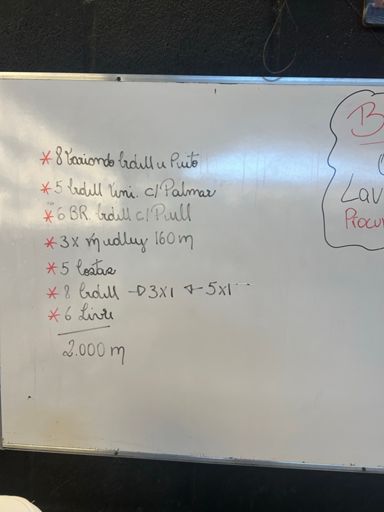 * 8 Variando Crawl e Peito
* 5 Crawl Uni. c/ Palmar
* 6 BR. Crawl c/ Pull
* 3x medley 160m
* 5 Costas
* 8 Crawl → 3x1 ← 5x1
* 6 Livre
2.000 m
B
Lav
Procu